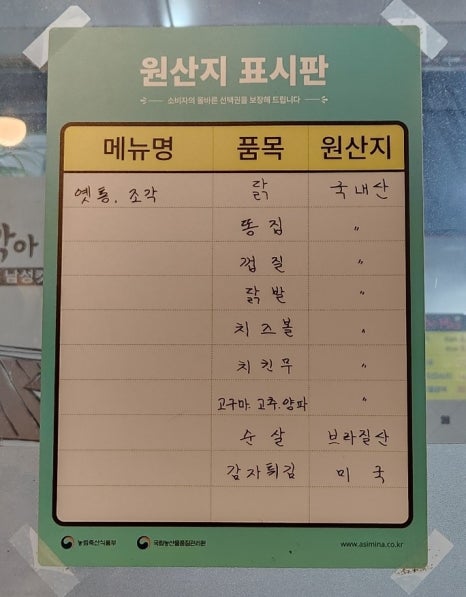 원산지 표시판
소비자의 올바른 선택권을 보장해 드립니다
메뉴명 품목 원산지
옛통. 조각 닭 국내산
똥집 〃
껍질 〃
닭발 〃
치즈볼 〃
치킨무 〃
고구마. 고추. 양파 〃
순살 브라질산
감자튀김 미국
농림축산식품부 국립농산물품질관리원 www.asimina.co.kr
막아
남성